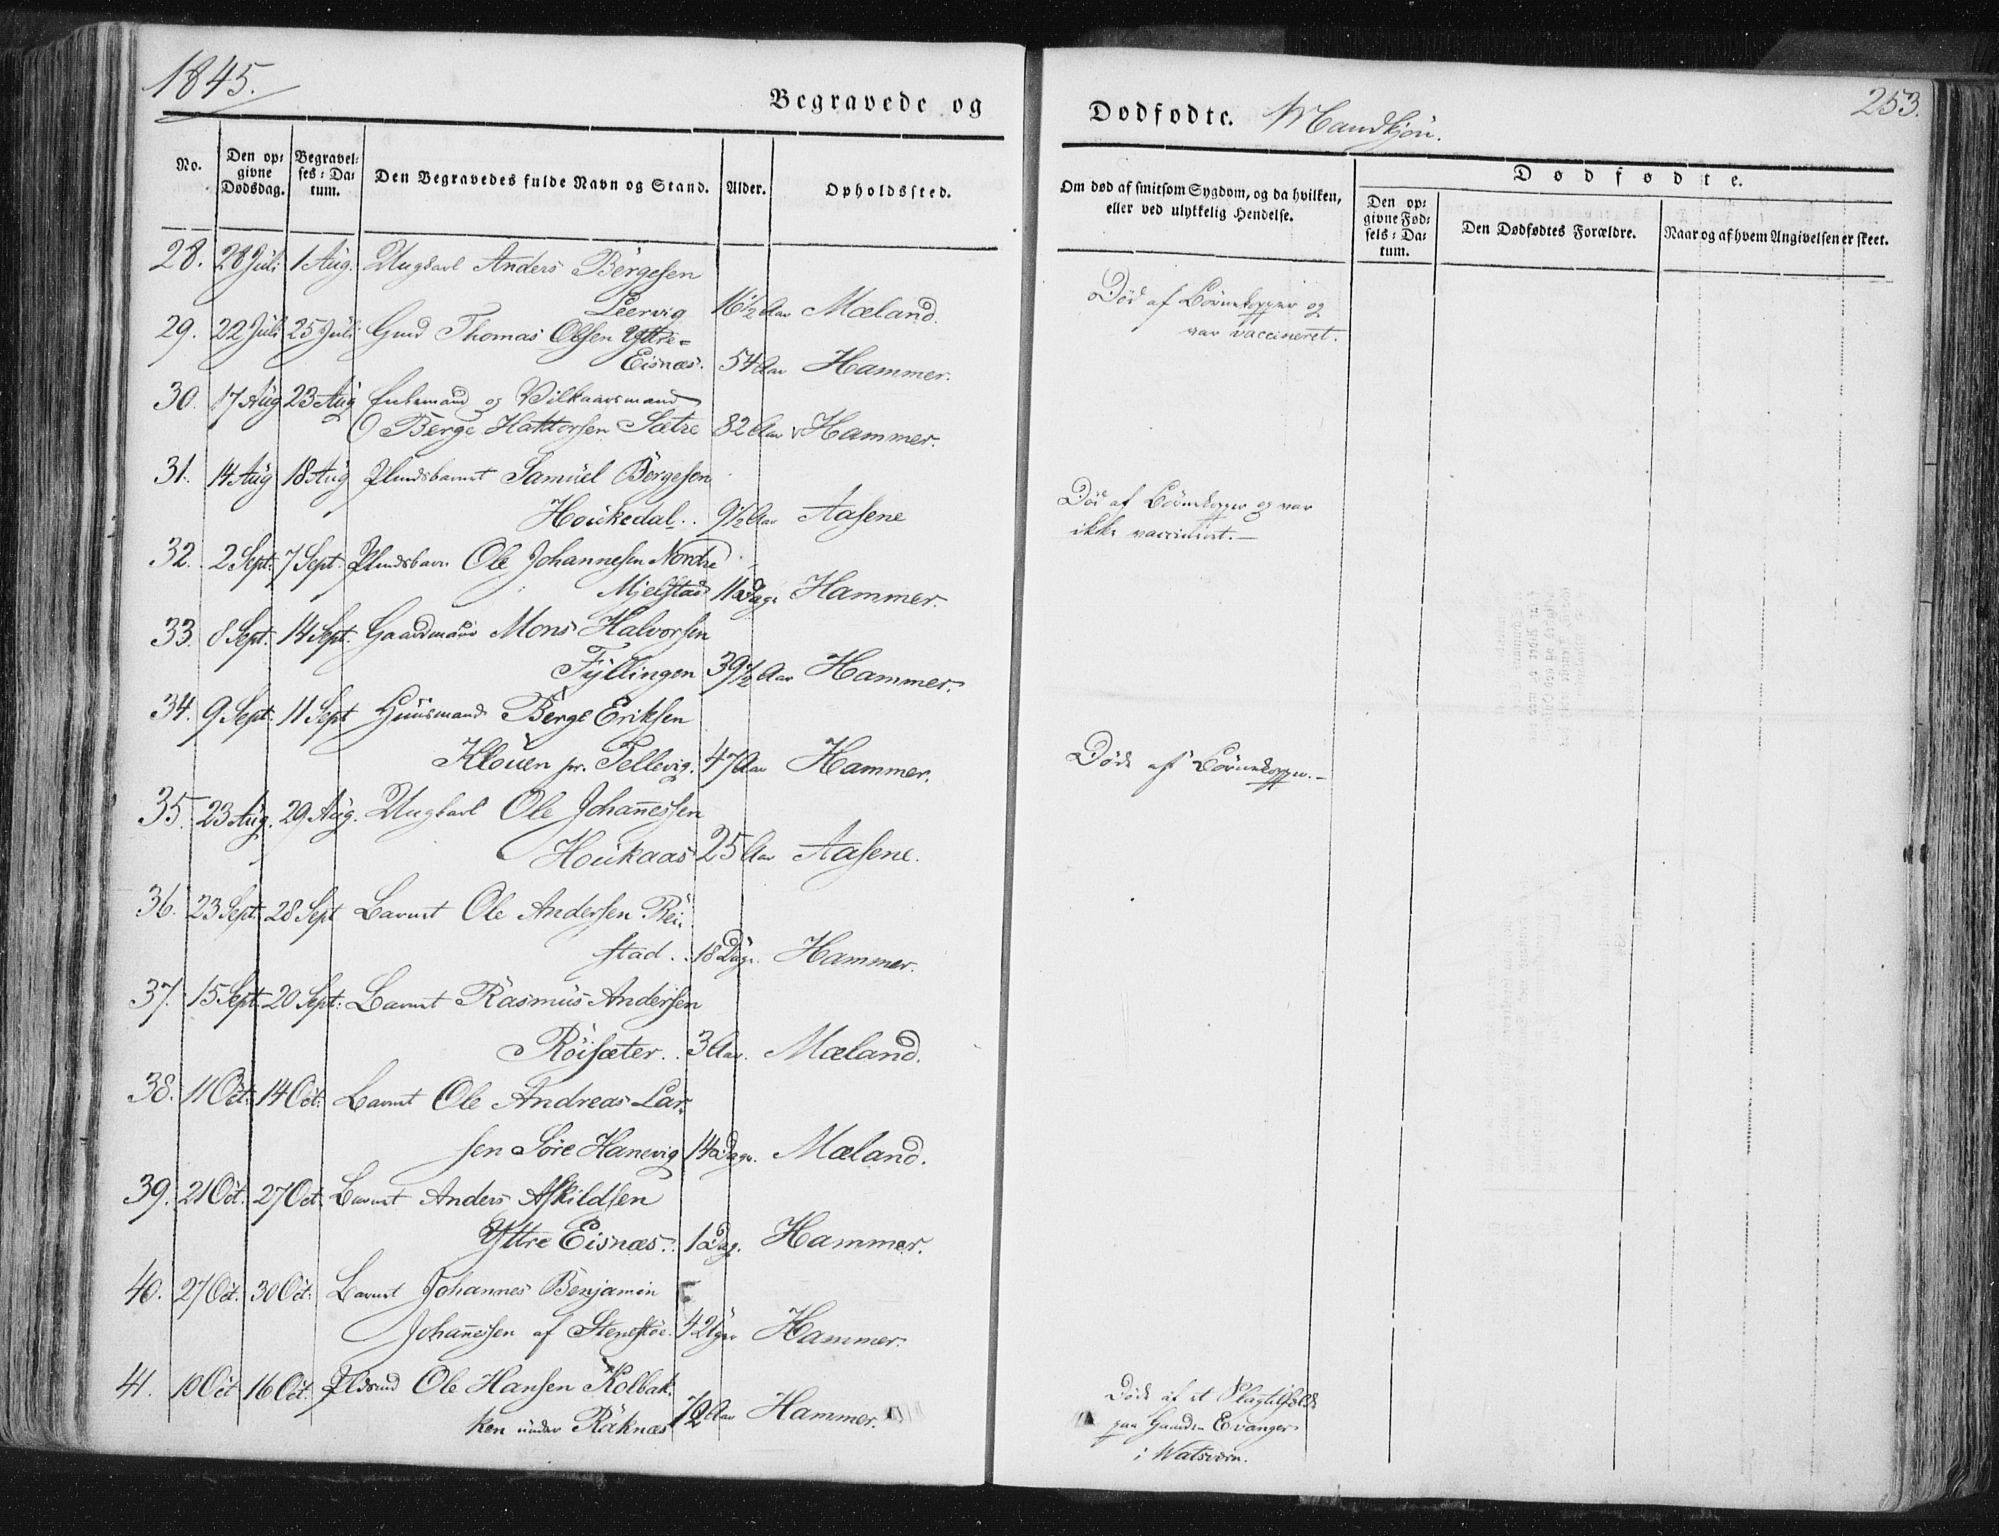 1845.
Begravede og
Dødfødte. Mandkjön.
253.
No.
Den op: givne Dødsdag.
Begravel: ses: Da: tum.
Den Begravedes fulde Navn og Stand.
Alder.
Opholdssted.
Om død af smitsom Sygdom, og da hvilken, eller ved ulykkelig Hendelse.
Dødfødte.
Den op: givne Fød: sels: Da: tum.
Den Dødfødtes Forældre.
Naar og af hvem Angivelsen er skeet.
28. 28 Juli 1 Aug. Ungkarl Anders Börgesen
Leervig 16½ Aar Mæland. Död af Börnekopper og
var vaccineret.
29. 22 Juli 25 Juli Gmd Thomas Olsen Yttre-
Eisnæs. 54 Aar Hammer.
30. 17 Aug 23 Aug Enkemand og Vilkaarsmand
Berge Haktorsen Sætre 82 Aar Hammer.
31. 14 Aug 18 Aug Samüel Börgesen
Houkedal.. 9½ Aar Aasene Död af Börnekopper og var
ikke vaccineret.-
32. 2 Sept. 7 Sept. Ole Johannesen Nordre
Mjelstad 11 Dage Hammer.
33. 8 Sept. 14 Sept. Gaardmand Mons Halvorsen
Fyllingen 39½ Aar Hammer.
34. 9 Sept. 11 Sept Huusmand Berge Eriksen
Klouen pr. Tellevig. 47 Aar Hammer. Döde af Börnekopper.-
35. 23 Aug. 29 Aug. Ungkarl Ole Johañessen
Houkaas 25 Aar Aasene.
36. 23 Sept. 28 Sept Barnet Ole Andersen Rei-
stad. 18 Dage. Hammer.
37. 15 Sept. 20 Sept: Barnet Rasmüs Andersen
Röisæter.. 3 Aar. Mæland.
38. 11 Oct. 14 Oct: Barnet Ole Andreas Lar-
sen Söre Hanevig 14 Dage. Mæland.
39. 21 Oct. 27 Oct. Barnet Anders Askildsen
Yttre Eisnæs.. 1 Dag. Hammer.
40. 27 Oct. 30 Oct: Barnet Johannes Benjamin
Johañessen af Stenestöe. 4 Uger Hammer.
41. 10 Oct 16 Oct. Ole Hansen Kolbak-
ken ünder Röknæs 72 Aar Hammer. Döde af et Slagtilfælde
paa Gaarden Evanger
i